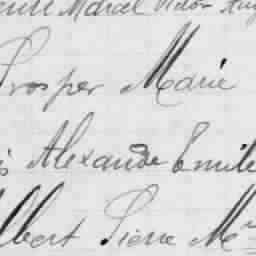 Marcel Victor Aug
Prosper Marie
Alexandre Emile
Albert Pierre Mr